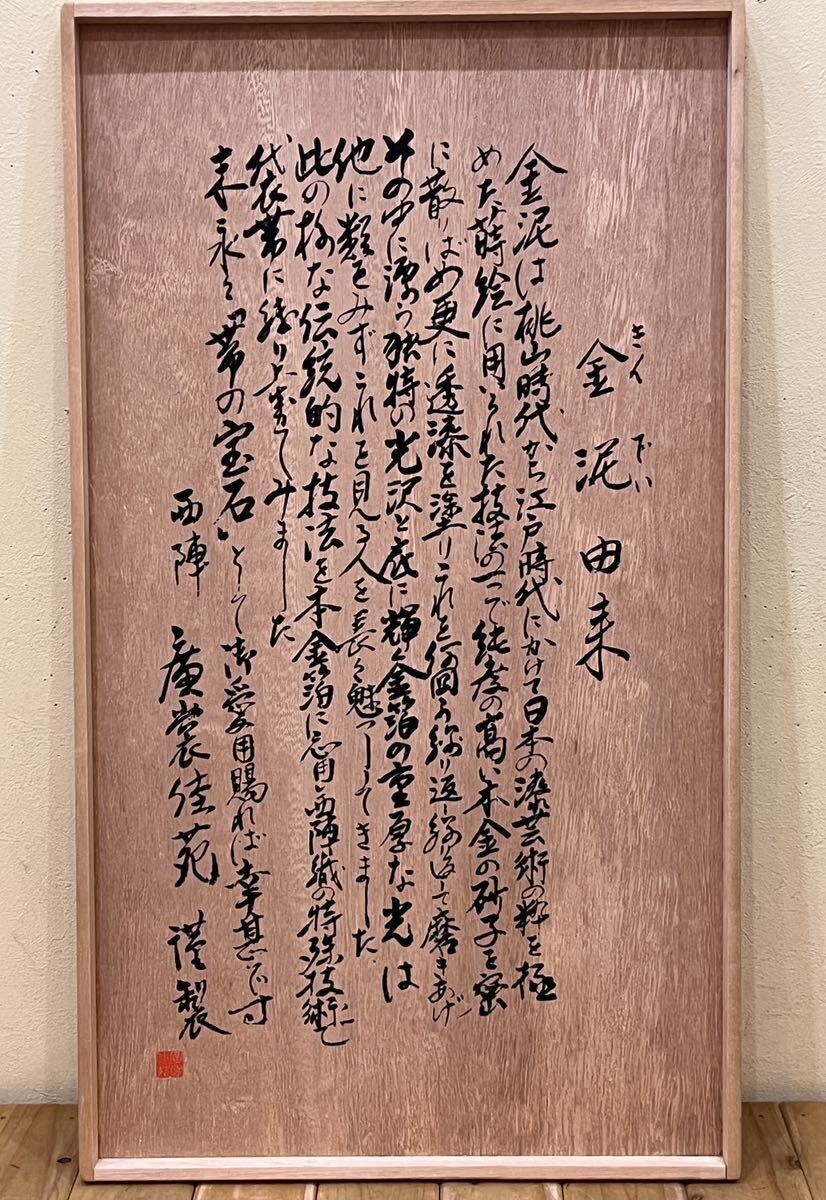 きん でい
金泥由来
金泥は桃山時代から江戸時代にかけて日本の漆芸術の粋を極
めた蒔絵に用いられた技法の一つで純度の高い本金の砂子を密
に散りばめ更に透漆を塗りこれを何回も繰り返し繰返して磨きあげ
その中に漂う独特の光沢と底に輝く金箔の重厚な光は
他に類をみずこれを見る人を長く魅了してきました
此の様な伝統的な技法を本金箔に応用し西陣織の特殊技術と
代衣帯に織り上げてみました
末永く「帯の宝石」として御愛用賜れば幸甚です
西陣 廣裳佳苑 謹製